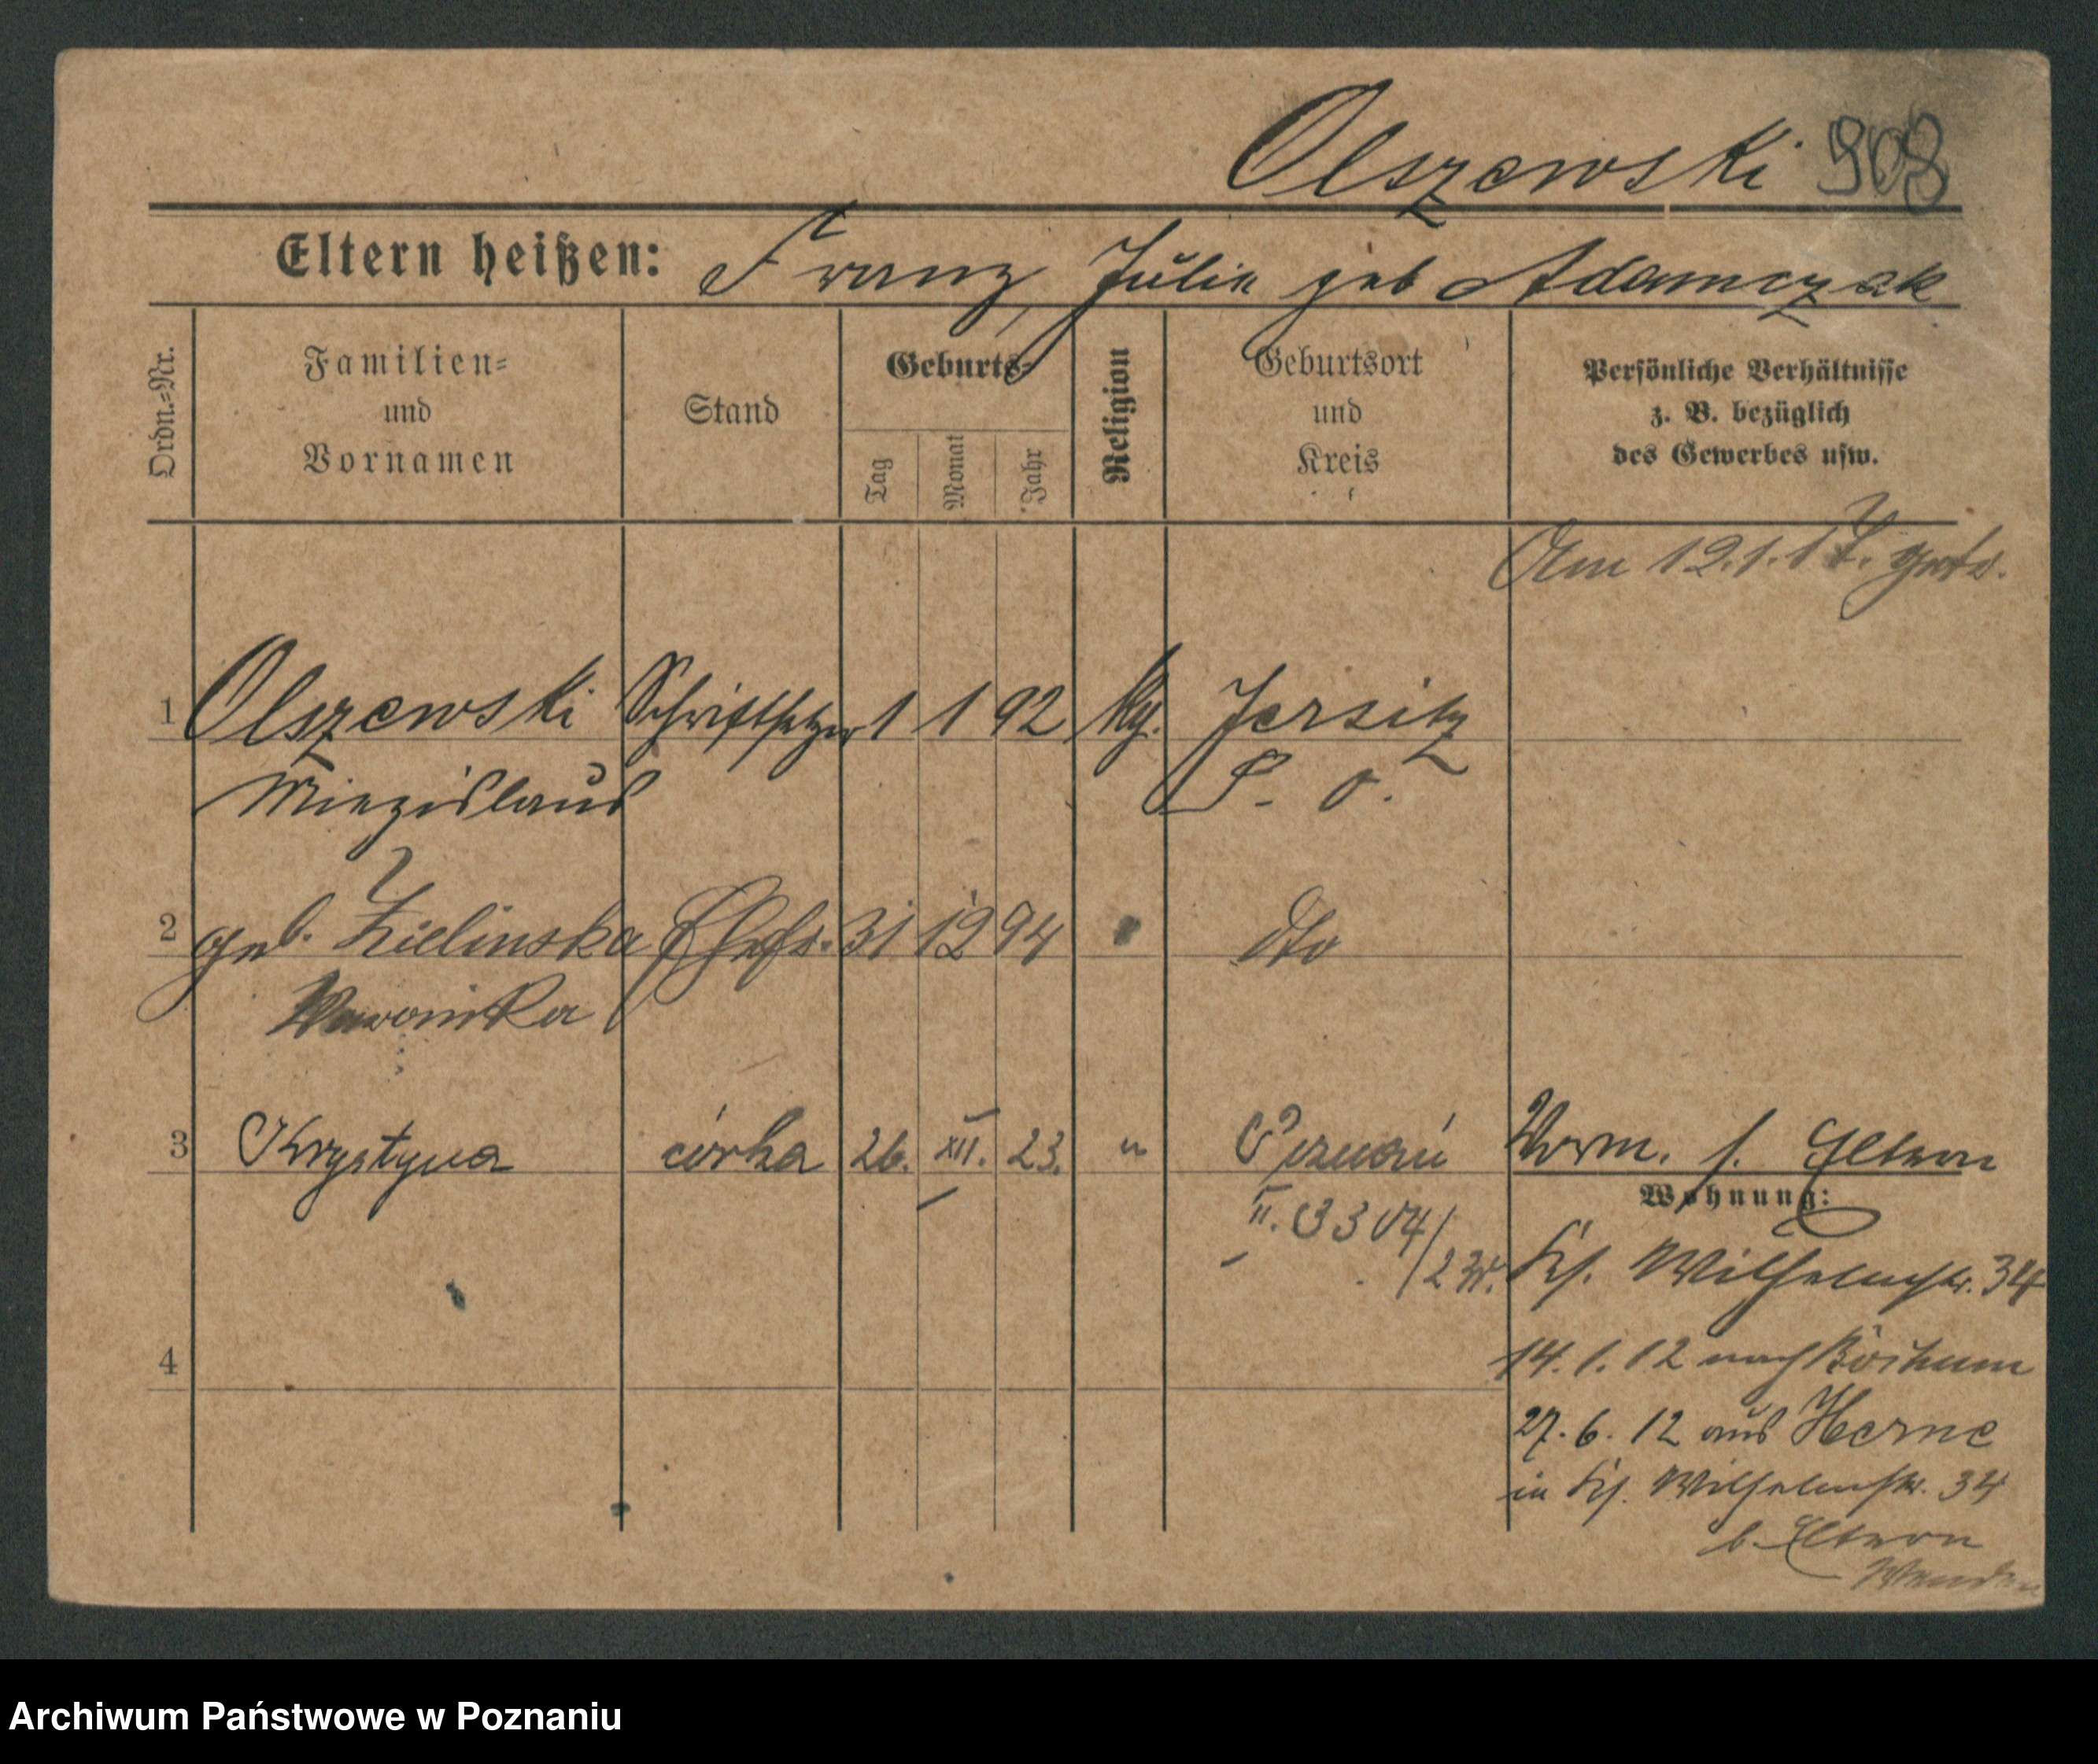 Olszewski 908
Eltern heißen: Franz, Julie geb Adamczak
Ordn.-Nr.
Familien-
und
Vornamen
Stand
Geburts-
Tag
Monat
Jahr
Religion
Geburtsort
und
Kreis
Persönliche Verhältnisse
z. B. bezüglich
des Gewerbes usw.
Am 12.1.17. getr.
1 Olszewski Schriftsetzer 1 1 92 kg. Jersitz
Miezislaus P. O.
2 geb. Zielinska Ehefr. 31 12 94 " dto
Weronika
3 Krystyna córka 26. XII. 23. " Poznań Verm. s. Eltern
Wohnung:
II. 3304/
/23r.
Wilhelmstr. 34
4
14.1.12 nach Bochum
27.6.12 aus Herne
in Wilhelmstr. 34
b. Eltern
Archiwum Państwowe w Poznaniu